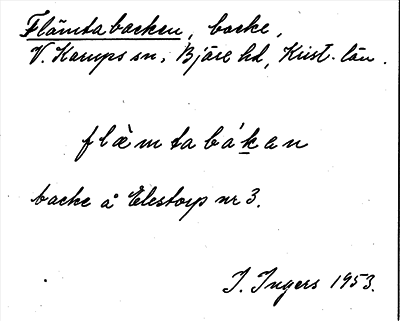 Flämtabacken, backe,
V. Karups sn, Bjäre hd, Krist. län.
flæ̀mtabákan
backe å Elestorp nr 3.
I. Ingers 1953.